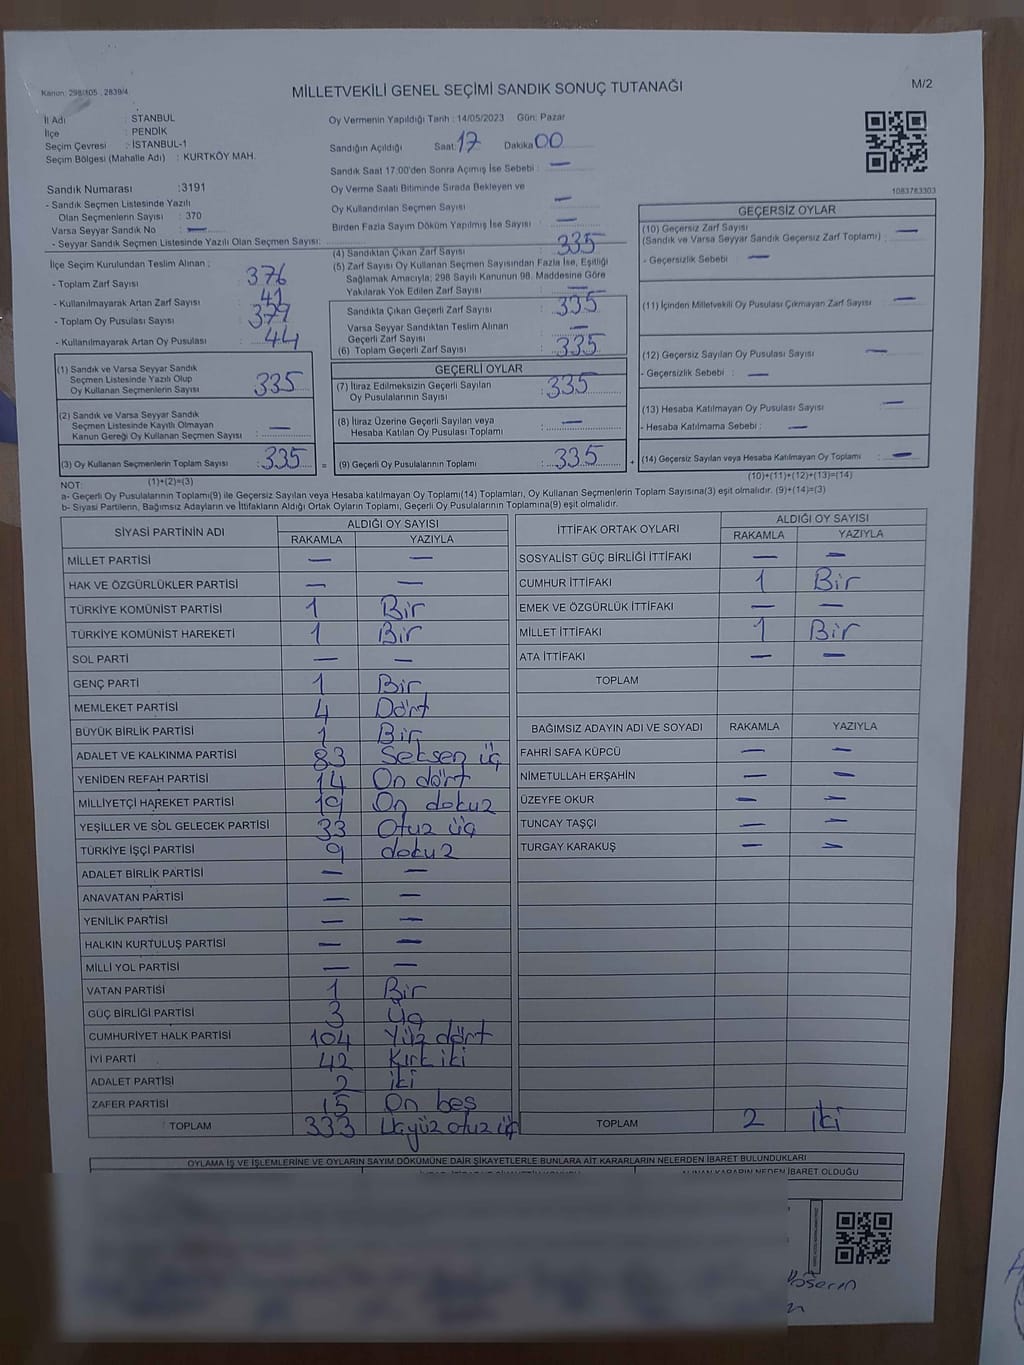 Kanun: 298/105 , 2839/4
MİLLETVEKİLİ GENEL SEÇİMİ SANDIK SONUÇ TUTANAĞI
M/2
İl Adı : STANBUL
İlçe : PENDİK
Seçim Çevresi : İSTANBUL-1
Seçim Bölgesi (Mahalle Adı) : KURTKÖY MAH.
Sandık Numarası : 3191
- Sandık Seçmen Listesinde Yazılı
Olan Seçmenlerin Sayısı : 370
Varsa Seyyar Sandık No : —
- Seyyar Sandık Seçmen Listesinde Yazılı Olan Seçmen Sayısı:
İlçe Seçim Kurulundan Teslim Alınan :
- Toplam Zarf Sayısı : 376
- Kullanılmayarak Artan Zarf Sayısı : 41
- Toplam Oy Pusulası Sayısı : 379
- Kullanılmayarak Artan Oy Pusulası : 44
(1) Sandık ve Varsa Seyyar Sandık
Seçmen Listesinde Yazılı Olup
Oy Kullanan Seçmenlerin Sayısı : 335
(2) Sandık ve Varsa Seyyar Sandık
Seçmen Listesinde Kayıtlı Olmayan
Kanun Gereği Oy Kullanan Seçmen Sayısı : —
(3) Oy Kullanan Seçmenlerin Toplam Sayısı : 335 =
Oy Vermenin Yapıldığı Tarih : 14/05/2023 Gün: Pazar
Sandığın Açıldığı Saat: 17 Dakika 00
Sandık Saat 17:00'den Sonra Açımış İse Sebebi : —
Oy Verme Saati Bitiminde Sırada Bekleyen ve
Oy Kullandırılan Seçmen Sayısı : —
Birden Fazla Sayım Döküm Yapılmış İse Sayısı : —
(4) Sandıktan Çıkan Zarf Sayısı : 335
(5) Zarf Sayısı Oy Kullanan Seçmen Sayısından Fazla İse, Eşitliği
Sağlamak Amacıyla; 298 Sayılı Kanunun 98. Maddesine Göre
Yakılarak Yok Edilen Zarf Sayısı : —
Sandıkta Çıkan Geçerli Zarf Sayısı : 335
Varsa Seyyar Sandıktan Teslim Alınan
Geçerli Zarf Sayısı : —
(6) Toplam Geçerli Zarf Sayısı : 335
GEÇERLİ OYLAR
(7) İtiraz Edilmeksizin Geçerli Sayılan
Oy Pusulalarının Sayısı : 335
(8) İtiraz Üzerine Geçerli Sayılan veya
Hesaba Katılan Oy Pusulası Toplamı : —
(9) Geçerli Oy Pusulalarının Toplamı : 335 +
1083763303
GEÇERSİZ OYLAR
(10) Geçersiz Zarf Sayısı
(Sandık ve Varsa Seyyar Sandık Geçersiz Zarf Toplamı) : —
- Geçersizlik Sebebi : —
(11) İçinden Milletvekili Oy Pusulası Çıkmayan Zarf Sayısı : —
(12) Geçersiz Sayılan Oy Pusulası Sayısı : —
- Geçersizlik Sebebi : —
(13) Hesaba Katılmayan Oy Pusulası Sayısı : —
- Hesaba Katılmama Sebebi : —
(14) Geçersiz Sayılan veya Hesaba Katılmayan Oy Toplamı : —
NOT: (1)+(2)=(3)
(10)+(11)+(12)+(13)=(14)
a- Geçerli Oy Pusulalarının Toplamı(9) ile Geçersiz Sayılan veya Hesaba katılmayan Oy Toplamı(14) Toplamları, Oy Kullanan Seçmenlerin Toplam Sayısına(3) eşit olmalıdır. (9)+(14)=(3)
b- Siyasi Partilerin, Bağımsız Adayların ve İttifakların Aldığı Ortak Oyların Toplamı, Geçerli Oy Pusulalarının Toplamına(9) eşit olmalıdır.
SİYASİ PARTİNİN ADI ALDIĞI OY SAYISI
RAKAMLA YAZIYLA
MİLLET PARTİSİ — —
HAK VE ÖZGÜRLÜKLER PARTİSİ — —
TÜRKİYE KOMÜNİST PARTİSİ 1 Bir
TÜRKİYE KOMÜNİST HAREKETİ 1 Bir
SOL PARTİ — —
GENÇ PARTİ 1 Bir
MEMLEKET PARTİSİ 4 Dört
BÜYÜK BİRLİK PARTİSİ 1 Bir
ADALET VE KALKINMA PARTİSİ 83 Seksen üç
YENİDEN REFAH PARTİSİ 14 On dört
MİLLİYETÇİ HAREKET PARTİSİ 19 On dokuz
YEŞİLLER VE SOL GELECEK PARTİSİ 33 Otuz üç
TÜRKİYE İŞÇİ PARTİSİ 9 dokuz
ADALET BİRLİK PARTİSİ — —
ANAVATAN PARTİSİ — —
YENİLİK PARTİSİ — —
HALKIN KURTULUŞ PARTİSİ — —
MİLLİ YOL PARTİSİ — —
VATAN PARTİSİ 1 Bir
GÜÇ BİRLİĞİ PARTİSİ 3 üç
CUMHURİYET HALK PARTİSİ 104 Yüz dört
İYİ PARTİ 42 Kırk iki
ADALET PARTİSİ 2 iki
ZAFER PARTİSİ 15 On beş
TOPLAM 333 Üçyüz otuz üç
İTTİFAK ORTAK OYLARI ALDIĞI OY SAYISI
RAKAMLA YAZIYLA
SOSYALİST GÜÇ BİRLİĞİ İTTİFAKI — —
CUMHUR İTTİFAKI 1 Bir
EMEK VE ÖZGÜRLÜK İTTİFAKI — —
MİLLET İTTİFAKI 1 Bir
ATA İTTİFAKI — —
TOPLAM
BAĞIMSIZ ADAYIN ADI VE SOYADI RAKAMLA YAZIYLA
FAHRİ SAFA KÜPCÜ — —
NİMETULLAH ERŞAHİN — —
ÜZEYFE OKUR — —
TUNCAY TAŞÇI — —
TURGAY KARAKUŞ — —
TOPLAM 2 iki
OYLAMA İŞ VE İŞLEMLERİNE VE OYLARIN SAYIM DÖKÜMÜNE DAİR ŞİKAYETLERLE BUNLARA AİT KARARLARIN NELERDEN İBARET BULUNDUKLARI
ALINAN KARARIN NEDEN İBARET OLDUĞU